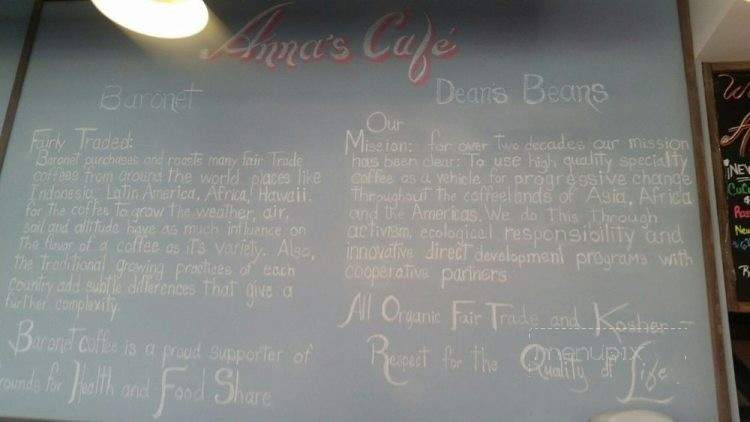 Anna's Café
Baronet
Fairly Traded:
Baronet purchases and roasts many Fair Trade
coffees from around the world places like
Indonesia, Latin America, Africa, Hawaii.
for the coffee to grow the weather, air,
soil and altitude have as much influence on
the flavor of a coffee as it's variety. Also,
the traditional growing practices of each
country add subtle differences that give a
further complexity.
Baronet coffee is a proud supporter of
rounds for Health and Food Share
Dean's Beans
Our
Mission: for over two decades our mission
has been clear: To use high quality specialty
coffee as a vehicle for progressive change
Throughout the coffeelands of Asia, Africa
and the Americas. We do This Through
activism, ecological responsibility and
innovative direct development programs with
cooperative partners
All Organic Fair Trade and Kosher -
Respect for the Quality of Life
menupix
NEW